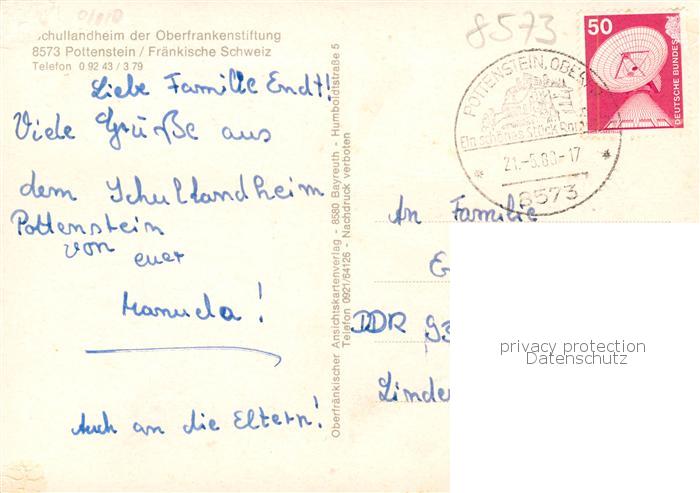 Schullandheim der Oberfrankenstiftung
8573 Pottenstein / Fränkische Schweiz
Telefon 0 92 43 / 3 79
Liebe Familie Endt!
Viele Grüße aus
dem Schullandheim
Pottenstein
von
euer
Manuela!
Auch an die Eltern!
Oberfränkischer Ansichtskartenverlag - 8580 Bayreuth - Humboldtstraße 5
Telefon 0921/64126 - Nachdruck verboten
8573
50
DEUTSCHE BUNDES
POTTENSTEIN, OBE
Ein schönes Stück
-17
8573
An Familie
E
DDR 93
Linde
privacy protection
Datenschutz